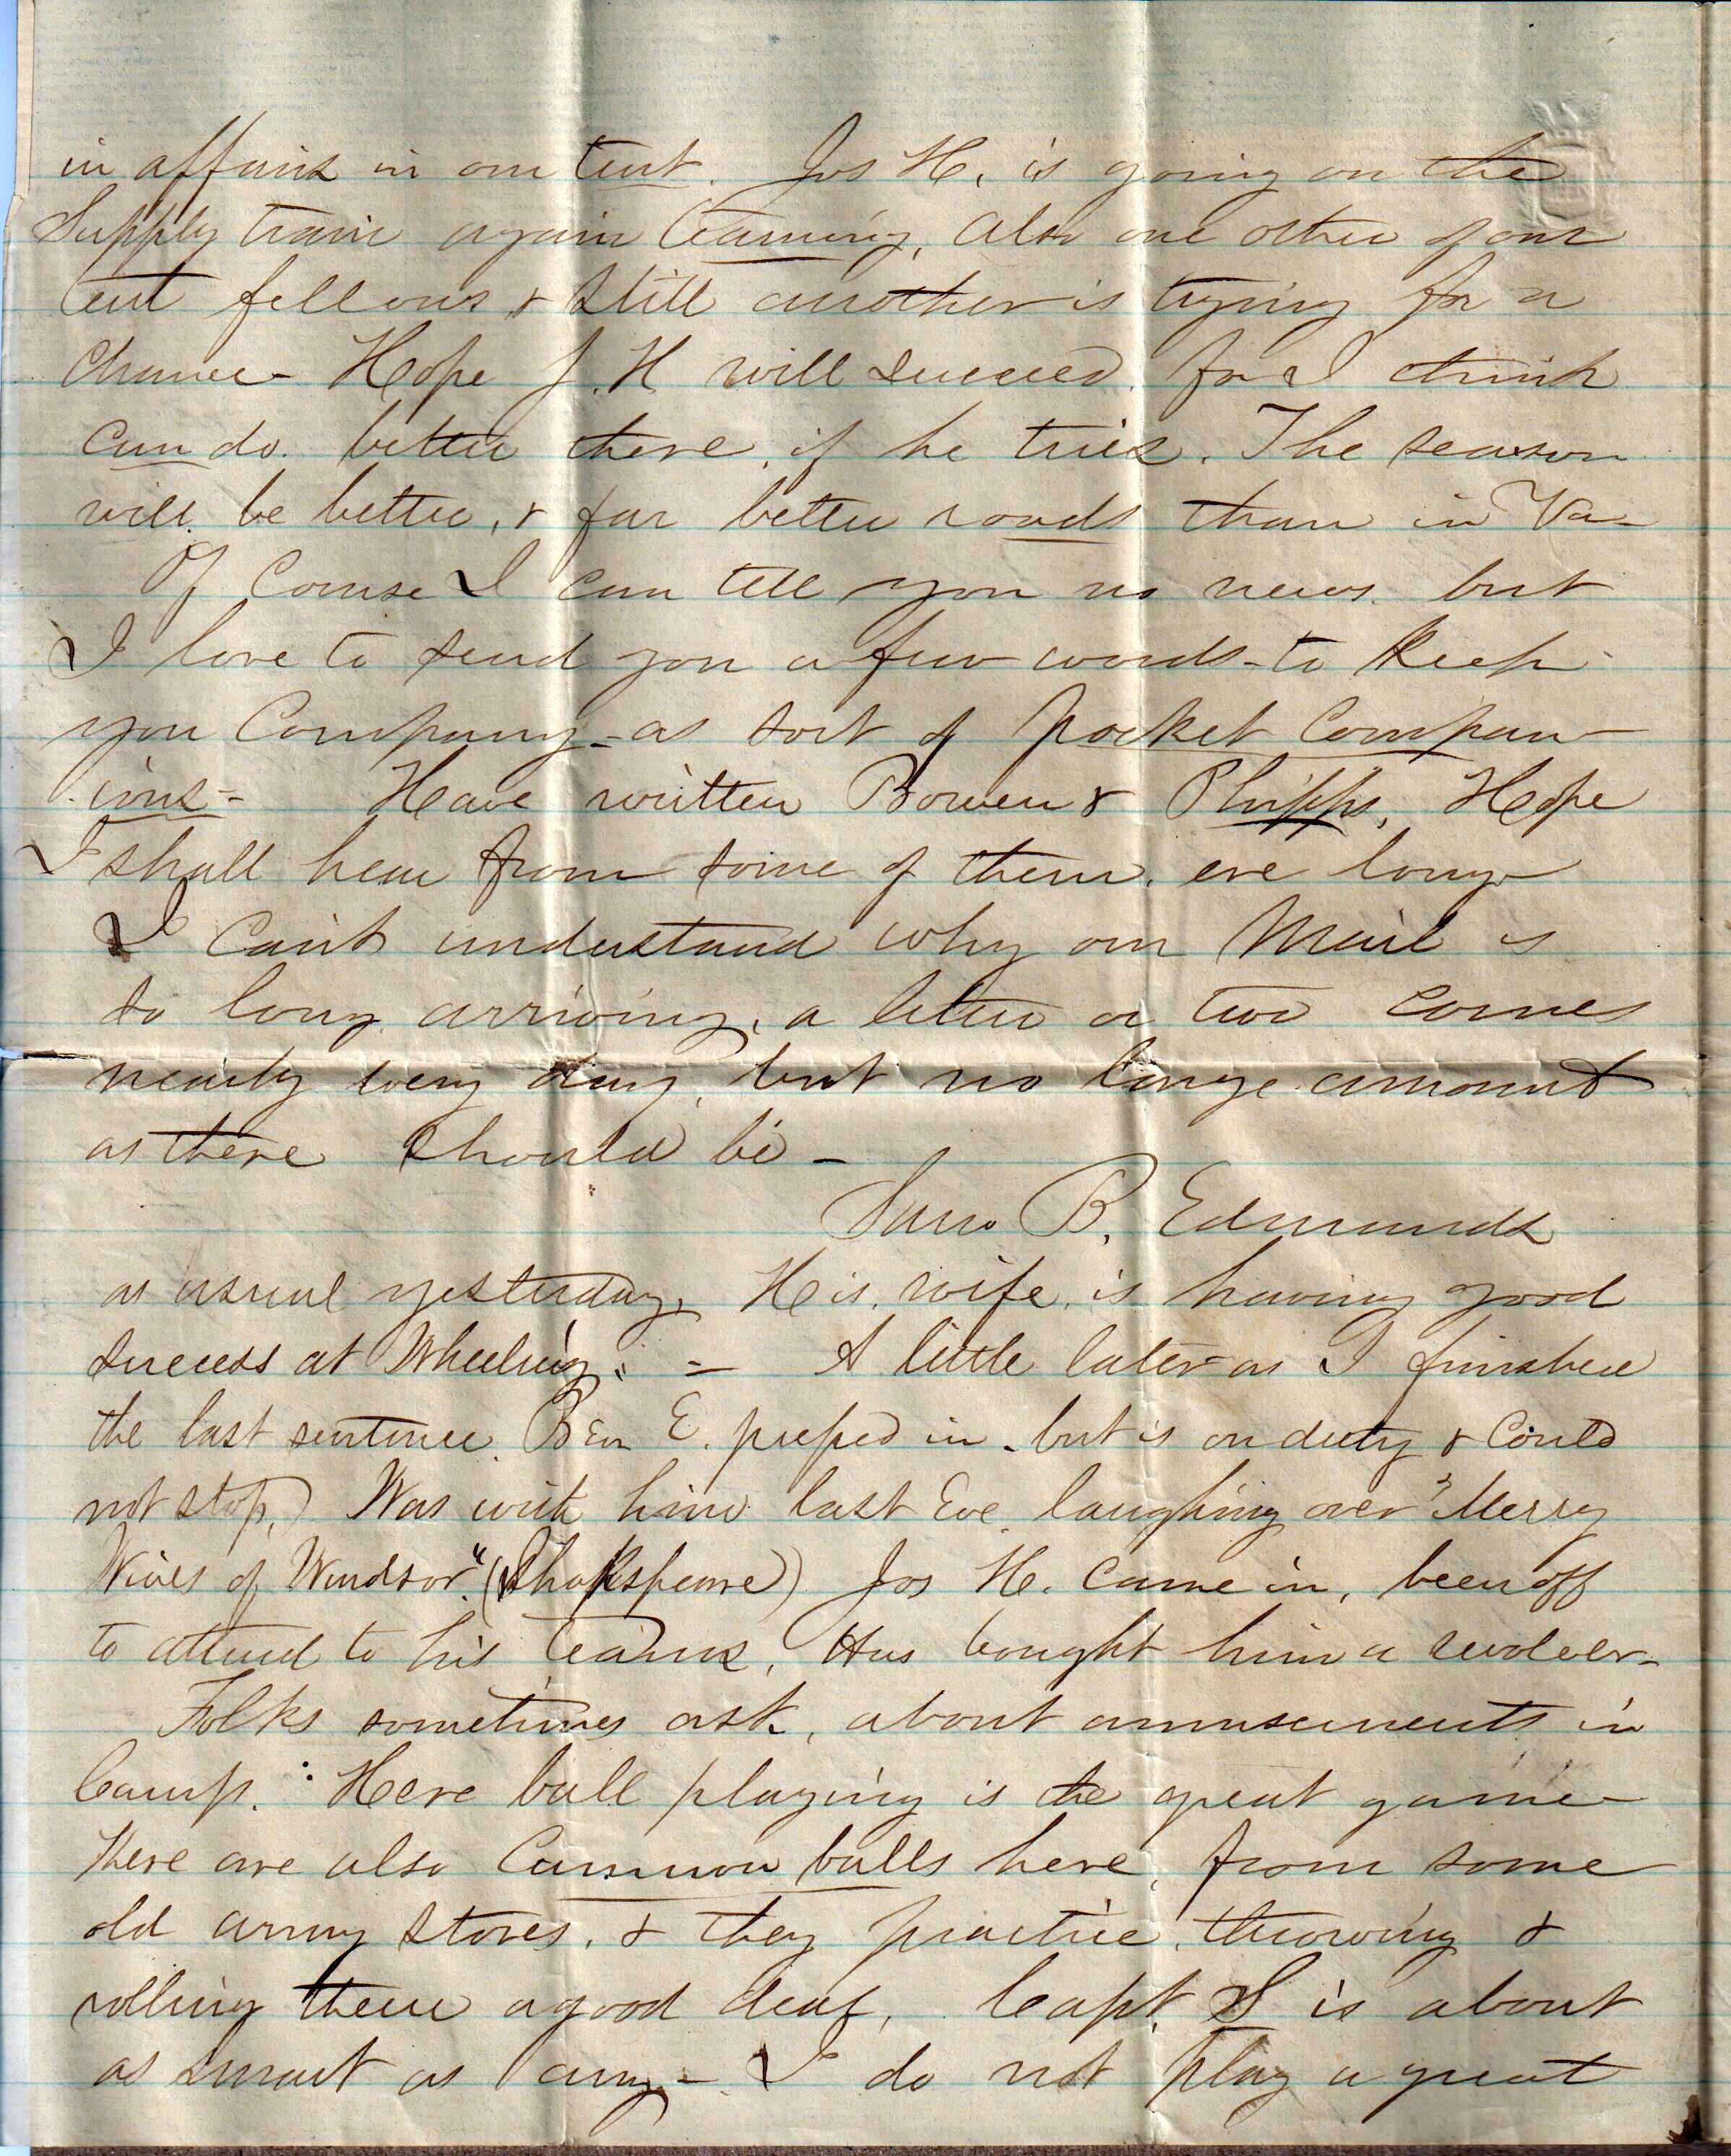 in affairs in our tent. Jos H. is going on the
Supply train again teaming, also one other of our
tent fellows & still another is trying for a
Chance - Hope J. H will succeed. for I think
can do. better there, if he tries. The season
will be better, & far better roads than in Va -
Of Course I can tell you no news. but
I love to send you a few words - to keep
you Company - as sort of pocket Compan-
ions - Have written Bowen & Phipps, Hope
I shall hear from some of them. ere long -
I can't understand why our Mail is
so long arriving, a letter or two comes
nearly every day, but no large amount
as there should be -
Saw B. Edmunds
as usual yesterday. His wife is having good
success at Wheeling. - A little later as I finished
the last sentence. Ben E. peeped in - but is on duty & Could
not stop.) Was with him last Eve laughing over "Merry
Wives of Windsor." (Shakspeare) Jos H. Came in, been off
to attend to his teams, Has bought him a revolver -
Folks sometimes ask, about amusements in
Camp. : Here ball playing is the great game -
There are also Cannon balls here, from some
old army stores, & they practice throwing &
rolling them a good deal, Capt. S is about
as smart as any - I do not play a great